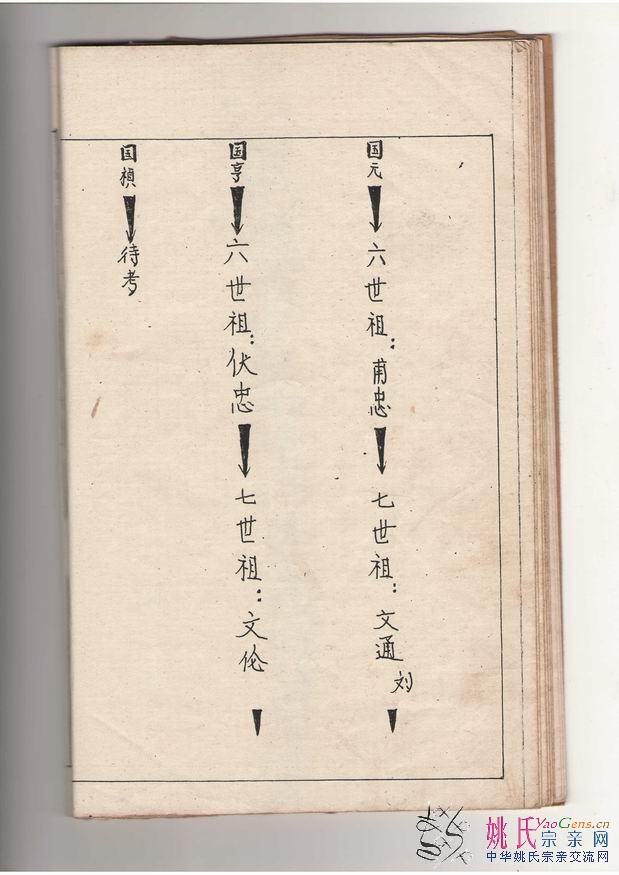 国元
六世祖：甫忠
七世祖：文通
刘
国亨
六世祖：伏忠
七世祖：文伦
国桢
待考
姚氏宗亲网
YaoGens.cn
中华姚氏宗亲交流网